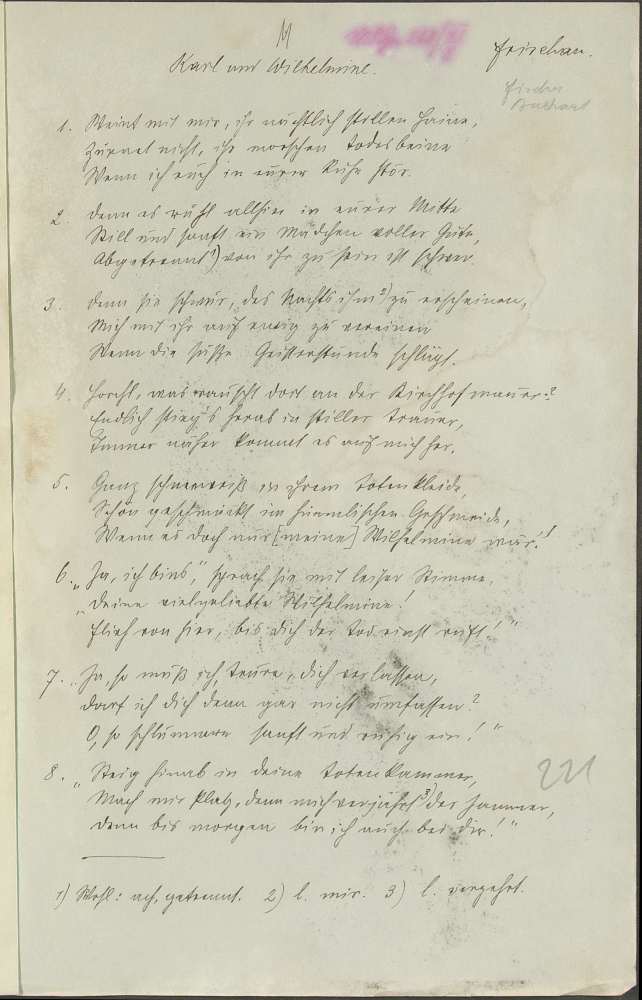 M
Karl und Wilhelmine.
Frischau.
1. Weint mit mir, ihr nächtlich stillen Haine,
Zürnet nicht, ihr morschen Todesbeine
Wenn ich euch in eurer Ruhe stör.
2. Denn es ruht allhier in eurer Mitte
Still und sanft ein Mädchen voller Güte,
Abgetrennt¹) von ihr zu sein ist schwer.
3. Denn sie schwur, des Nachts ihm²) zu erscheinen,
Mich mit ihr auf ewig zu vereinen
Wenn die süße Geisterstunde schlägt.
4. Horcht, was rauscht dort an der Kirchhofmauer?
Endlich stieg's herab in stiller Trauer,
Immer näher kommt es auf mich her.
5. Ganz schneeweiß in ihrem Totenkleide,
Schön geschmückt im himmlischen Geschmeide,
Wenn es doch nur [meine] Wilhelmine wär'!
6. „Ja, ich bins", sprach sie mit leiser Stimme,
„Deine vielgeliebte Wilhelmine!
Flieh von hier, bis dich der Tod einst ruft!"
7. „Ja, so muß ich, Teure, dich verlassen,
Darf ich dich denn gar nicht umfassen?
O, so schlummere sanft und ruhig ein!"
8. „Steig hinab in deine Totenkammer,
Mach mir Platz, denn mich verjährt³) der Jammer,
Denn bis morgen bin ich auch bei dir!"
221
1) Wohl: ach, getrennt. 2) l. mir. 3) l. verzehrt.